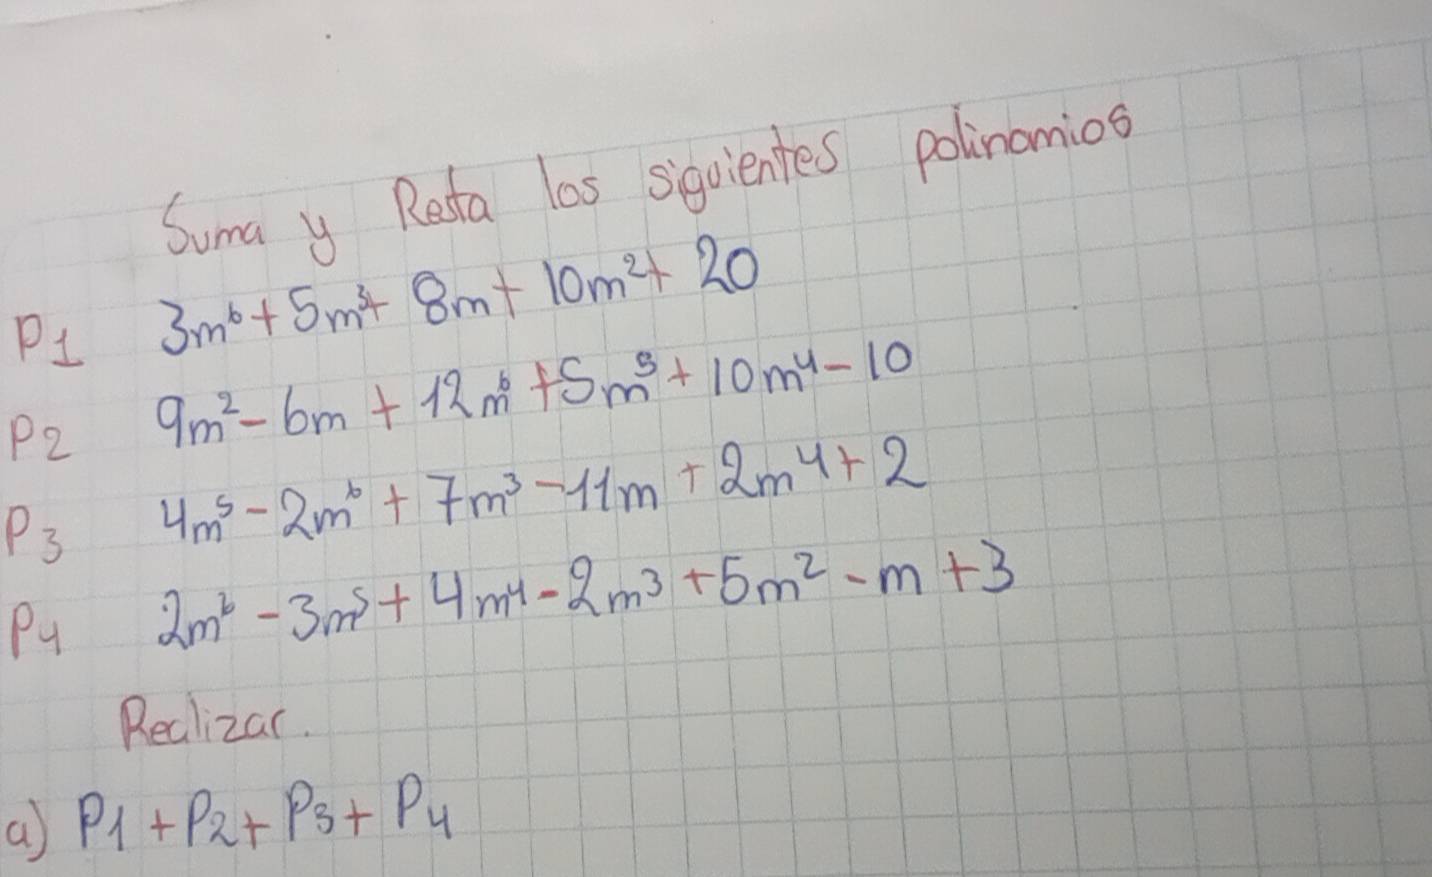 Suma y Resta los siguientes polinomios
P1 3m⁶ + 5m³ + 8m + 10m² + 20
P2 9m² - 6m + 12m⁶ + 5m⁵ + 10m⁴ - 10
P3 4m⁵ - 2m⁶ + 7m³ - 11m + 2m⁴ + 2
P4 2m⁶ - 3m⁵ + 4m⁴ - 2m³ + 5m² - m + 3
Realizar.
a) P1 + P2 + P3 + P4